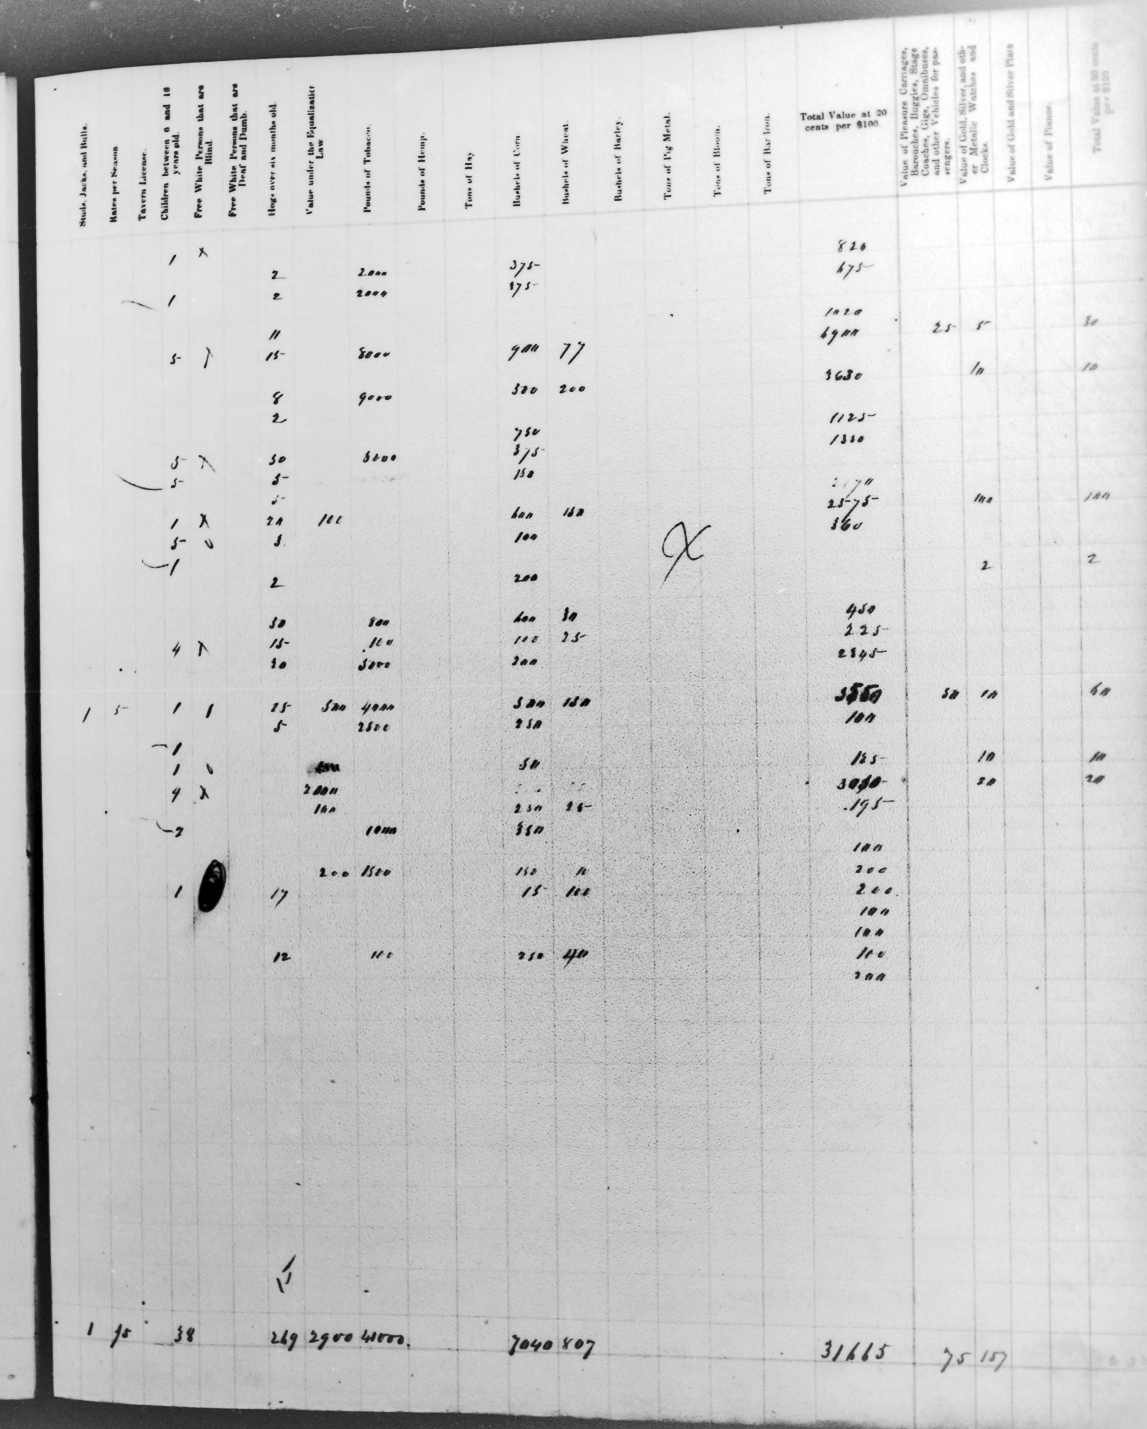 Studs, Jacks, and Bulls.
Rates per Season
Tavern License.
Children between 6 and 18 years old.
Free White Persons that are Blind.
Free White Persons that are Deaf and Dumb.
Hogs over six months old.
Value under the Equalization Law
Pounds of Tobacco.
Pounds of Hemp.
Tons of Hay
Bushels of Corn
Bushels of Wheat.
Bushels of Barley.
Tons of Pig Metal.
Tons of Bloom.
Tons of Bar Iron.
Total Value at 20 cents per $100.
Value of Pleasure Carriages, Barouches, Buggies, Stage Coaches, Gigs, Omnibuses, and other Vehicles for passengers.
Value of Gold, Silver, and other Metalic Watches and Clocks.
Value of Gold and Silver Plate
Value of Pianos.
Total Value at 30 cents per $100
1 x 820
2 2000 375 675
1 2 2000 375
1020
11 6900 25 5 30
5 15 8000 900 77
3630 10 10
8 9000 300 200
2 1125
750 1350
5 x 30 3000 375
5 5 150
5 2575 100 100
1 x 20 100 600 150 360
5 3 100
1 2 2
2 200
450
30 800 600 30 225
4 15 100 100 25 2345
30 3000 200
3550 50 10 60
1 5 1 1 25 500 4000 500 150 100
5 2500 250
1
1 50 125 10 10
4 x 2000 20 20
100 250 25 195
2 1000 350
100
200 1500 150 10 200
1 17 15 100 200
100
100
12 100 250 40 100
200
x
1 38 269 2900 41000. 7040 807 31665 75 157